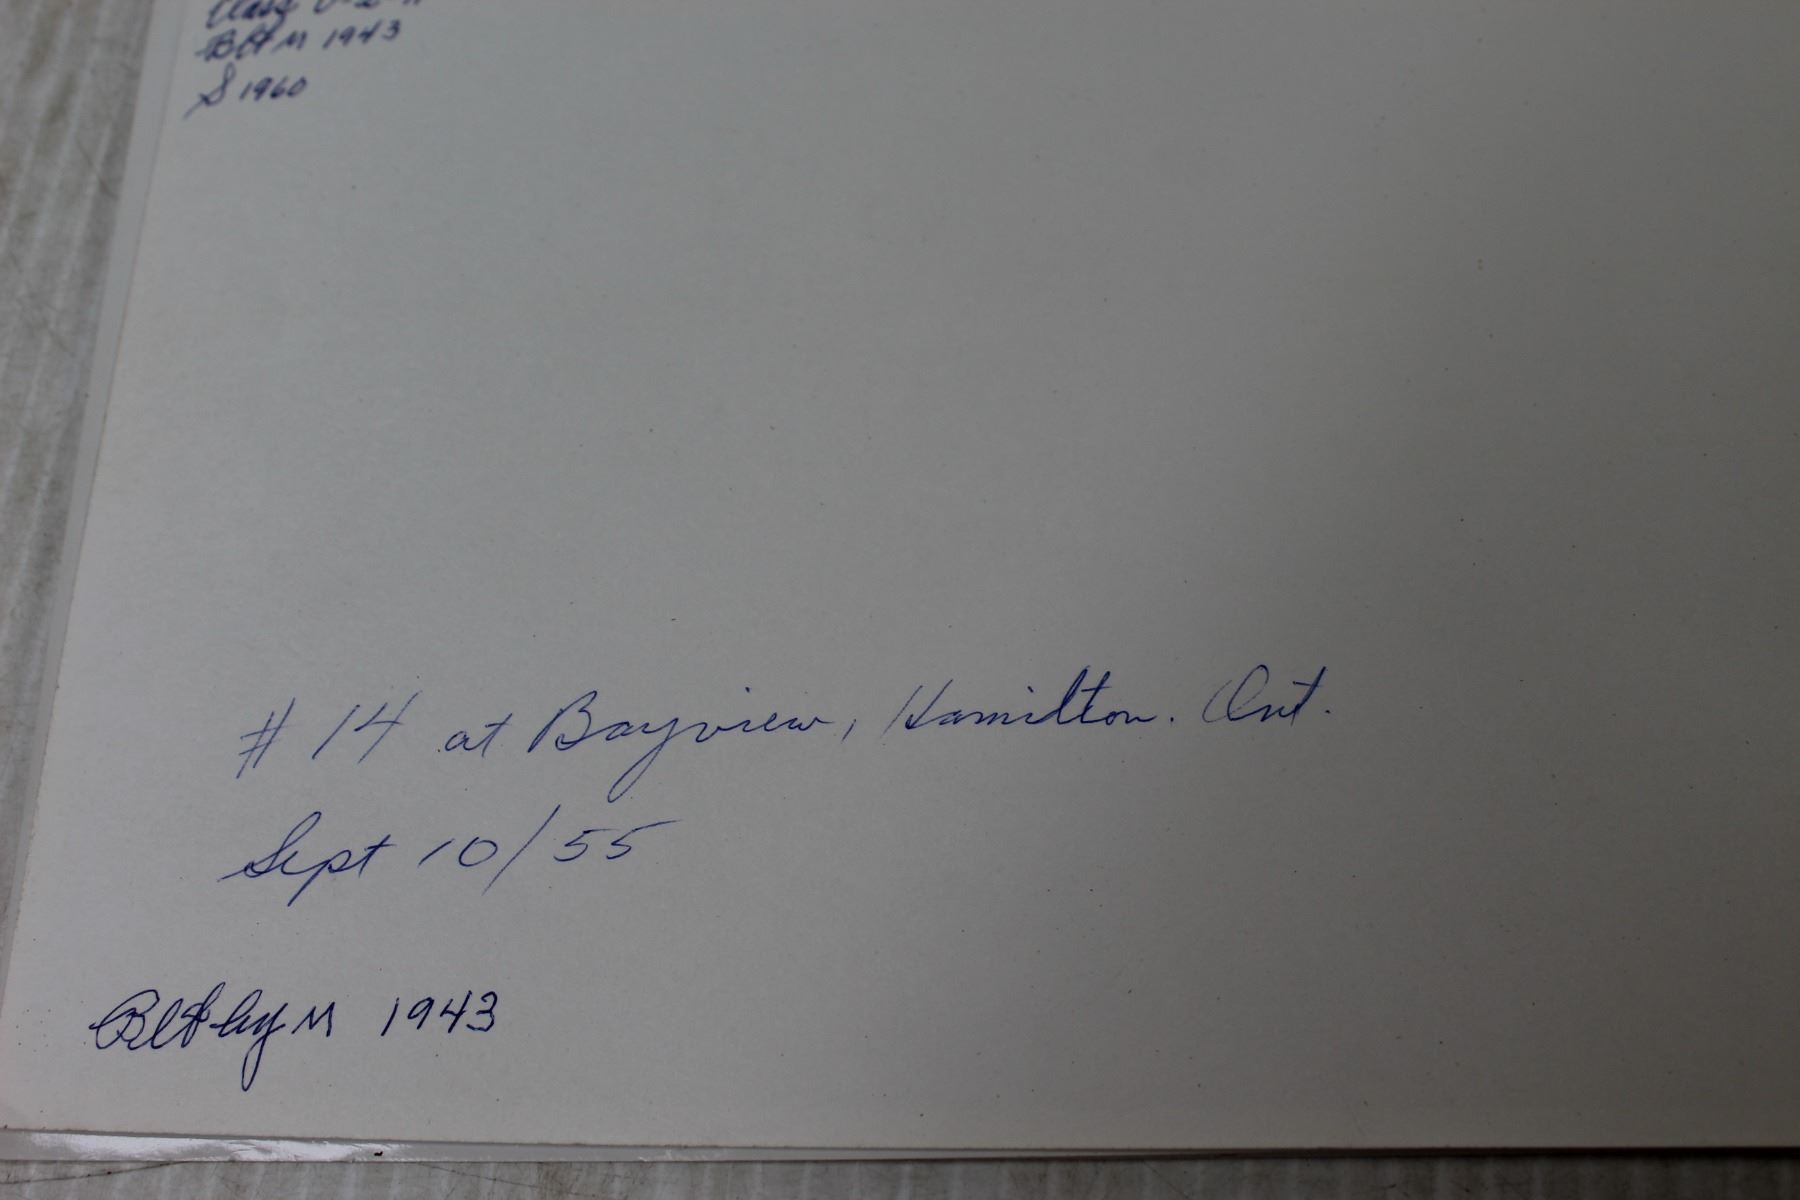 Class U-2-
Blt M 1943
S 1960
# 14 at Bayview, Hamilton. Ont.
Sept 10/55
Blt by M 1943